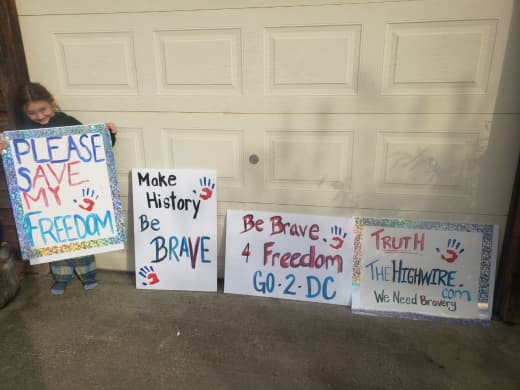 PLEASE
SAVE
MY
FREEDOM
Make
History
Be
BRAVE
Be Brave
4 Freedom
GO·2·DC
TRUTH
THEHIGHWIRE.
com
We Need Bravery